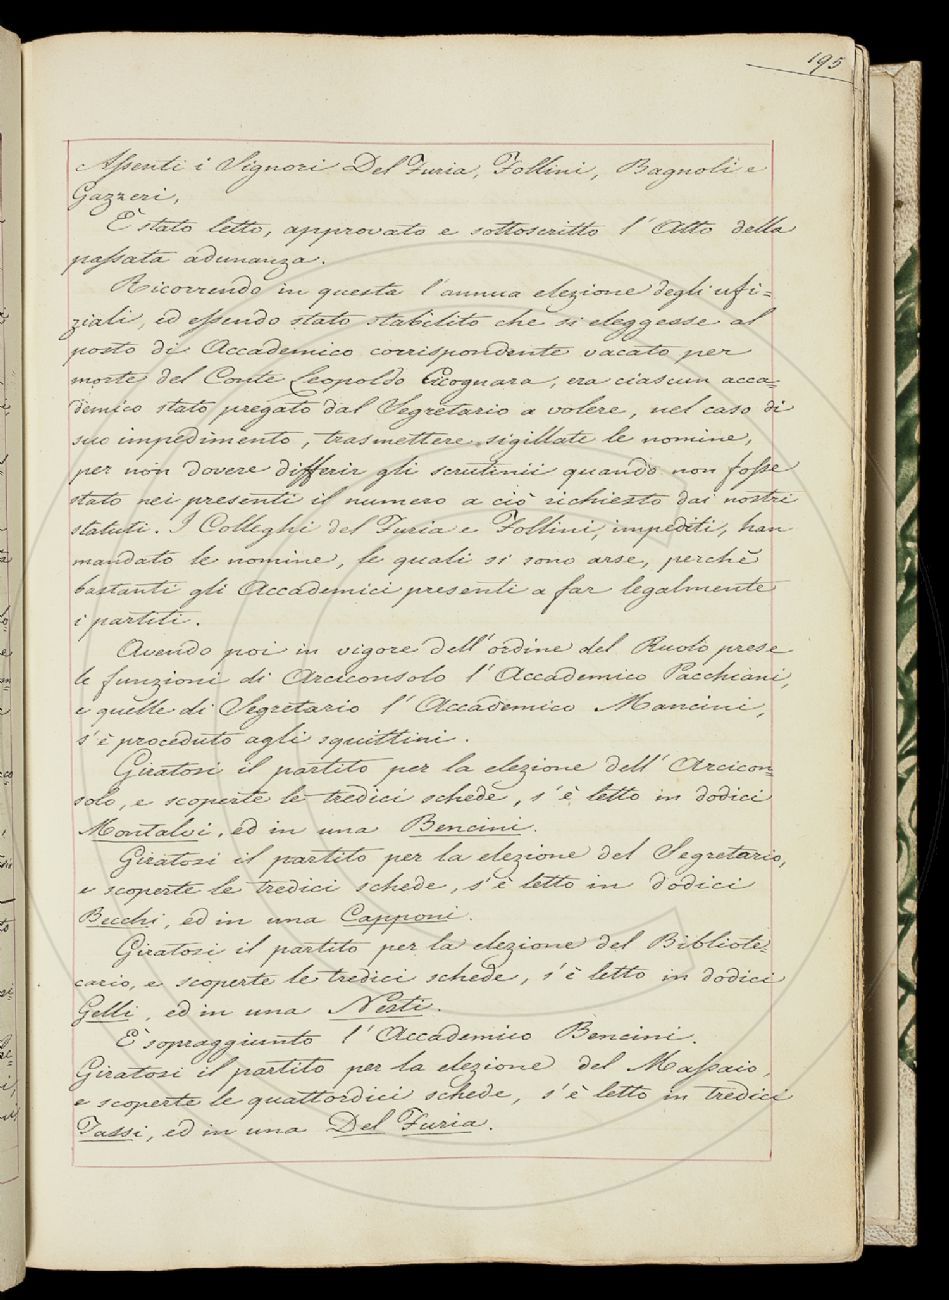 195
Assenti i Signori Del Furia, Follini, Bagnoli e
Gazzeri,
È stato letto, approvato e sottoscritto l'Atto della
passata adunanza.
Ricorrendo in questa l'annua elezione degli ufi=
ziali, ed essendo stato stabilito che si eleggesse al
posto di Accademico corrispondente vacato per
morte del Conte Leopoldo Cicognara, era ciascun acca=
demico stato pregato dal Segretario a volere, nel caso di
suo impedimento, trasmettere sigillate le nomine,
per non dovere differir gli scrutinii quando non fosse
stato nei presenti il numero a ciò richiesto dai nostri
statuti. I Colleghi del Furia e Follini, impediti, han
mandato le nomine, le quali si sono arse, perchè
bastanti gli Accademici presenti a far legalmente
i partiti.
Avendo poi in vigore dell'ordine del Ruolo prese
le funzioni di Arciconsolo l'Accademico Pacchiani,
e quelle di Segretario l'Accademico Mancini,
s'è proceduto agli squittini.
Giratosi il partito per la elezione dell'Arcicon=
solo, e scoperte le tredici schede, s'è letto in dodici
Montalvi, ed in una Bencini.
Giratosi il partito per la elezione del Segretario,
e scoperte le tredici schede, s'è letto in dodici
Becchi, ed in una Capponi.
Giratosi il partito per la elezione del Bibliote=
cario, e scoperte le tredici schede, s'è letto in dodici
Gelli, ed in una Nesti.
È sopraggiunto l'Accademico Bencini.
Giratosi il partito per la elezione del Massaio,
e scoperte le quattordici schede, s'è letto in tredici
Tassi, ed in una Del Furia.